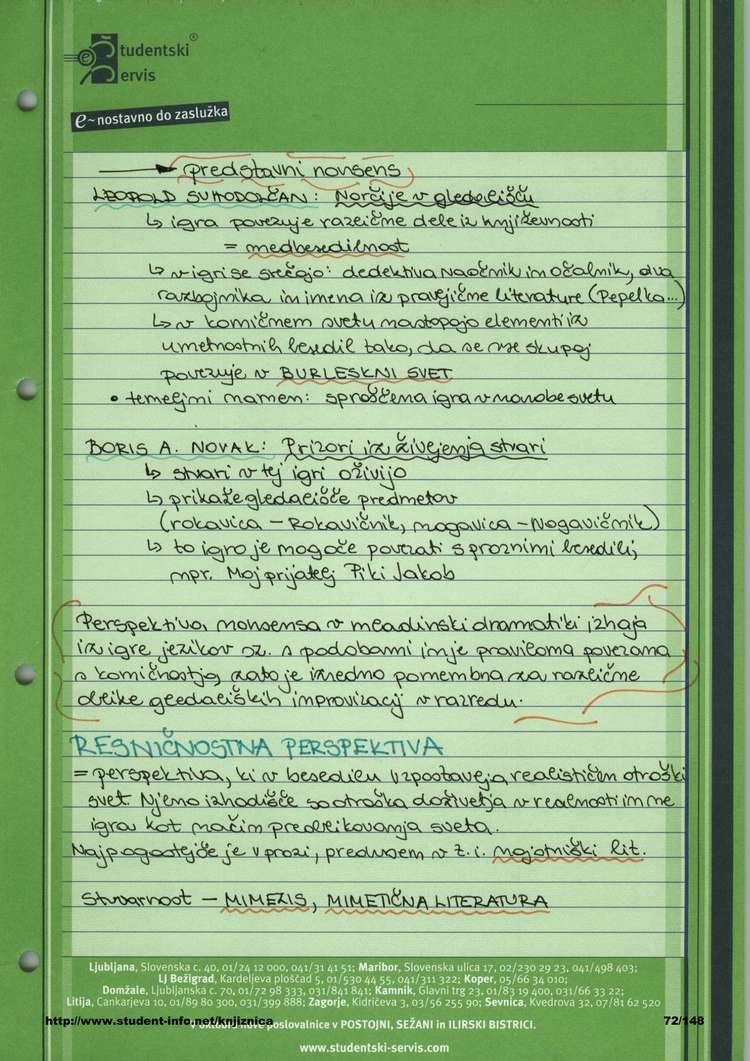 Študentski®
Servis
e~nostavno do zaslužka
→ predstavni nonsens
LEOPOLD SUHODOLČAN: Norčije v gledališču
↳ igra povezuje različne dele iz književnosti
= medbesedilnost
↳ v igri se srečajo: dedektiva Naočnik in Očalnik, dva
razbojnika in imena iz pravljične literature (Pepelka...)
↳ v komičnem svetu nastopajo elementi iz
umetnostnih besedil tako, da se vse skupaj
povezuje v BURLESKNI SVET
• temeljni namen: sproščena igra v narobe svetu
BORIS A. NOVAK: Prizori iz življenja stvari
↳ stvari v tej igri oživijo
↳ prikaže gledališče predmetov
(rokavica – Rokavičnik, nogavica – Nogavičnik)
↳ to igro je mogoče povezati s proznimi besedili,
npr. Moj prijatelj Piki Jakob
Perspektiva nonsensa v mladinski dramatiki izhaja
iz igre jezikov oz. s podobami in je praviloma povezana
s komičnostjo, zato je izredno pomembna za različne
oblike gledaliških improvizacij v razredu.
RESNIČNOSTNA PERSPEKTIVA
= perspektiva, ki v besedilu vzpostavlja realističen otroški
svet. Njeno izhodišče so otroška doživetja v realnosti in ne
igra kot način preoblikovanja sveta.
Najpogostejše je v prozi, predvsem v t.i. najstniški lit.
Stvarnost – MIMEZIS, MIMETIČNA LITERATURA
Ljubljana, Slovenska c. 40, 01/24 12 000, 041/31 41 51; Maribor, Slovenska ulica 17, 02/230 29 23, 041/498 403;
LJ Bežigrad, Kardeljeva ploščad 5, 01/530 44 55, 041/311 322; Koper, 05/66 34 010;
Domžale, Ljubljanska c. 70, 01/72 98 333, 031/841 841; Kamnik, Glavni trg 23, 01/83 19 400, 031/66 33 22;
Litija, Cankarjeva 10, 01/89 80 300, 031/399 888; Zagorje, Kidričeva 3, 03/56 255 90; Sevnica, Kvedrova 32, 07/81 62 520
http://www.student-info.net/knjiznica nove poslovalnice v POSTOJNI, SEŽANI in ILIRSKI BISTRICI. 72/148
www.studentski-servis.com